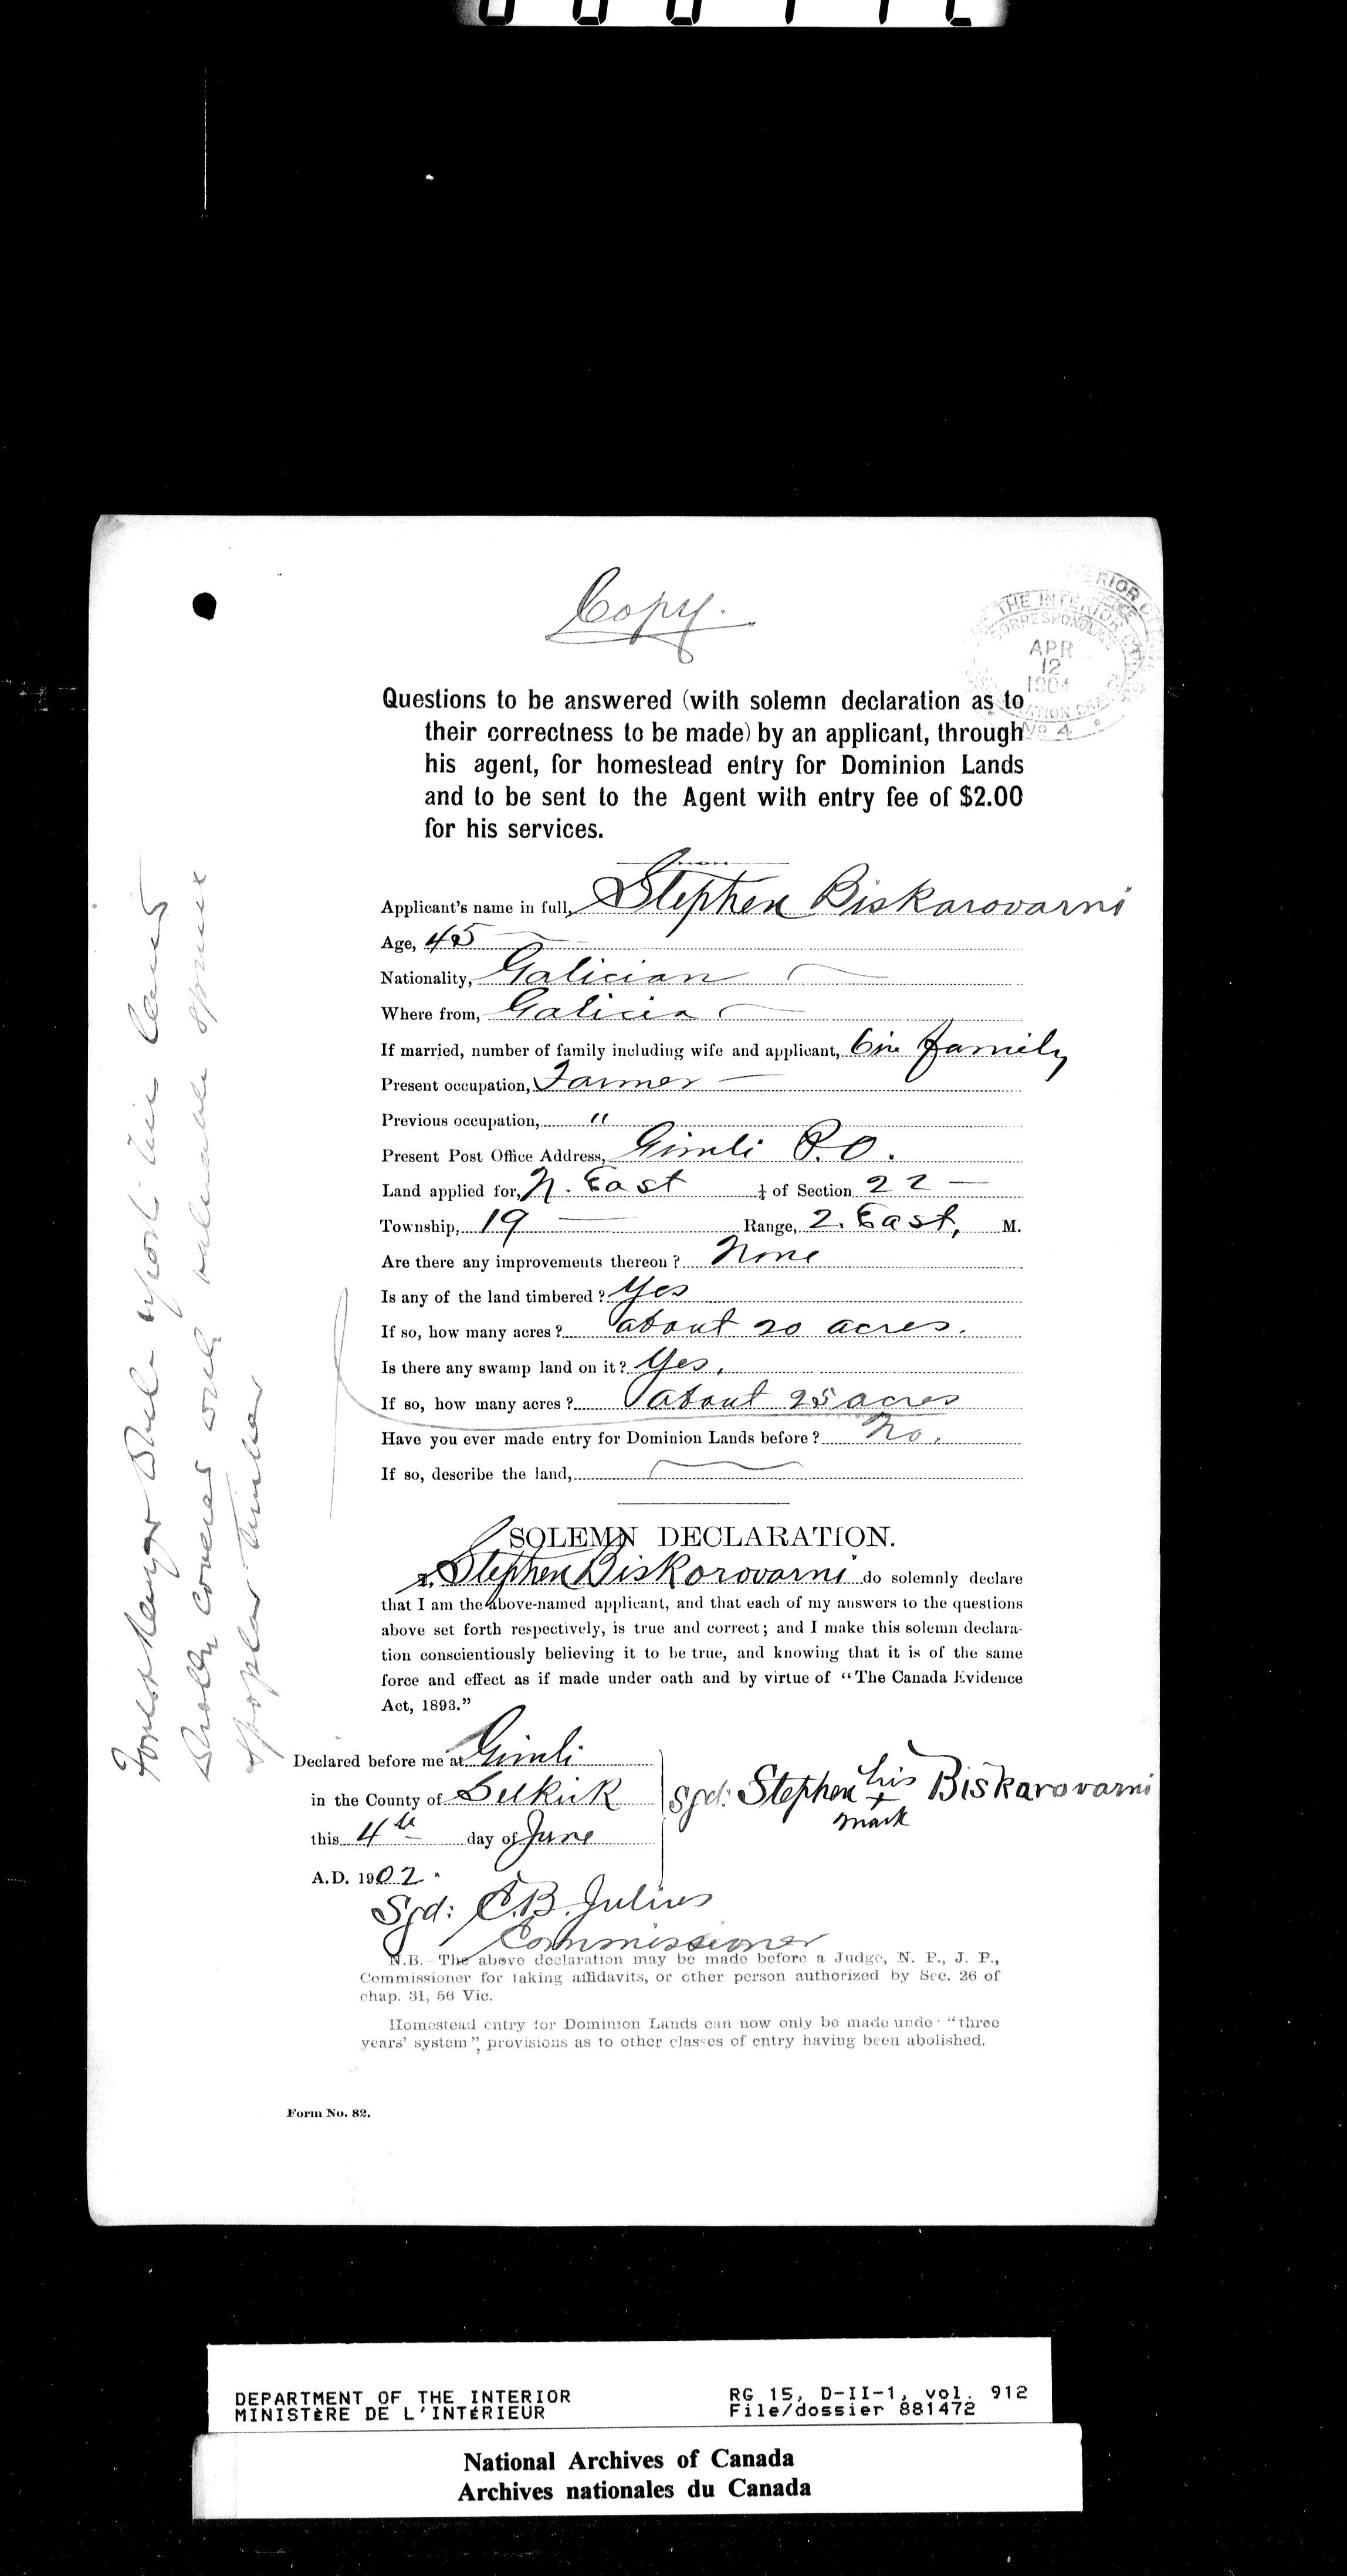 Copy.
THE INTERIOR
CORRESPONDENCE
APR
12
1904
No 4
Questions to be answered (with solemn declaration as to
their correctness to be made) by an applicant, through
his agent, for homestead entry for Dominion Lands
and to be sent to the Agent with entry fee of $2.00
for his services.
Applicant's name in full, Stephen Biskarovarni
Age, 45
Nationality, Galician
Where from, Galicia
If married, number of family including wife and applicant, family
Present occupation, Farmer
Previous occupation, "
Present Post Office Address, Gimli P.O.
Land applied for, N. East ¼ of Section 22
Township, 19 Range, 2. East, M.
Are there any improvements thereon? None
Is any of the land timbered? Yes
If so, how many acres? about 20 acres.
Is there any swamp land on it? Yes,
If so, how many acres? about 25 acres
Have you ever made entry for Dominion Lands before? No.
If so, describe the land,
SOLEMN DECLARATION.
I, Stephen Biskorovarni do solemnly declare
that I am the above-named applicant, and that each of my answers to the questions
above set forth respectively, is true and correct; and I make this solemn declara-
tion conscientiously believing it to be true, and knowing that it is of the same
force and effect as if made under oath and by virtue of "The Canada Evidence
Act, 1893."
Declared before me at Gimli
in the County of Selkirk
this 4th day of June
A.D. 1902.
Sgd: Stephen his + mark Biskarovarni
Sgd: C.B. Julius
Commissioner
N.B.—The above declaration may be made before a Judge, N. P., J. P.,
Commissioner for taking affidavits, or other person authorized by Sec. 26 of
chap. 31, 56 Vic.
Homestead entry for Dominion Lands can now only be made unde "three
years' system", provisions as to other classes of entry having been abolished.
Form No. 82.
Forest Ranger report this land
wholly covered with valuable spruce
& poplar timber
DEPARTMENT OF THE INTERIOR
MINISTÈRE DE L'INTÉRIEUR
RG 15, D-II-1, vol. 912
File/dossier 881472
National Archives of Canada
Archives nationales du Canada